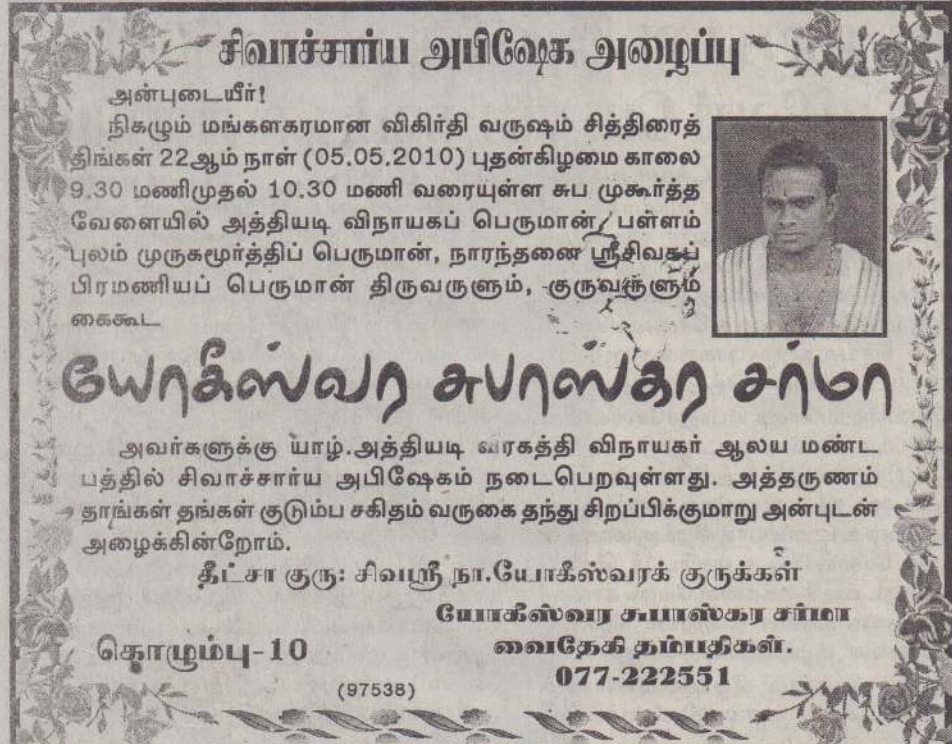 சிவாச்சார்ய அபிஷேக அழைப்பு
அன்புடையீர்!
நிகழும் மங்களகரமான விகிர்தி வருஷம் சித்திரைத்
திங்கள் 22ஆம் நாள் (05.05.2010) புதன்கிழமை காலை
9.30 மணிமுதல் 10.30 மணி வரையுள்ள சுப முகூர்த்த
வேளையில் அத்தியடி விநாயகப் பெருமான், பள்ளம்
புலம் முருகமூர்த்திப் பெருமான், நாரந்தனை ஸ்ரீசிவசுப்
பிரமணியப் பெருமான் திருவருளும், குருவருளும்
கைகூட
யோகீஸ்வர சுபாஸ்கர சர்மா
அவர்களுக்கு யாழ்.அத்தியடி வரகத்தி விநாயகர் ஆலய மண்ட
பத்தில் சிவாச்சார்ய அபிஷேகம் நடைபெறவுள்ளது. அத்தருணம்
தாங்கள் தங்கள் குடும்ப சகிதம் வருகை தந்து சிறப்பிக்குமாறு அன்புடன்
அழைக்கின்றோம்.
தீட்சா குரு: சிவஸ்ரீ நா.யோகீஸ்வரக் குருக்கள்
யோகீஸ்வர சுபாஸ்கர சர்மா
வைதேகி தம்பதிகள்.
கொழும்பு-10
077-222551
(97538)